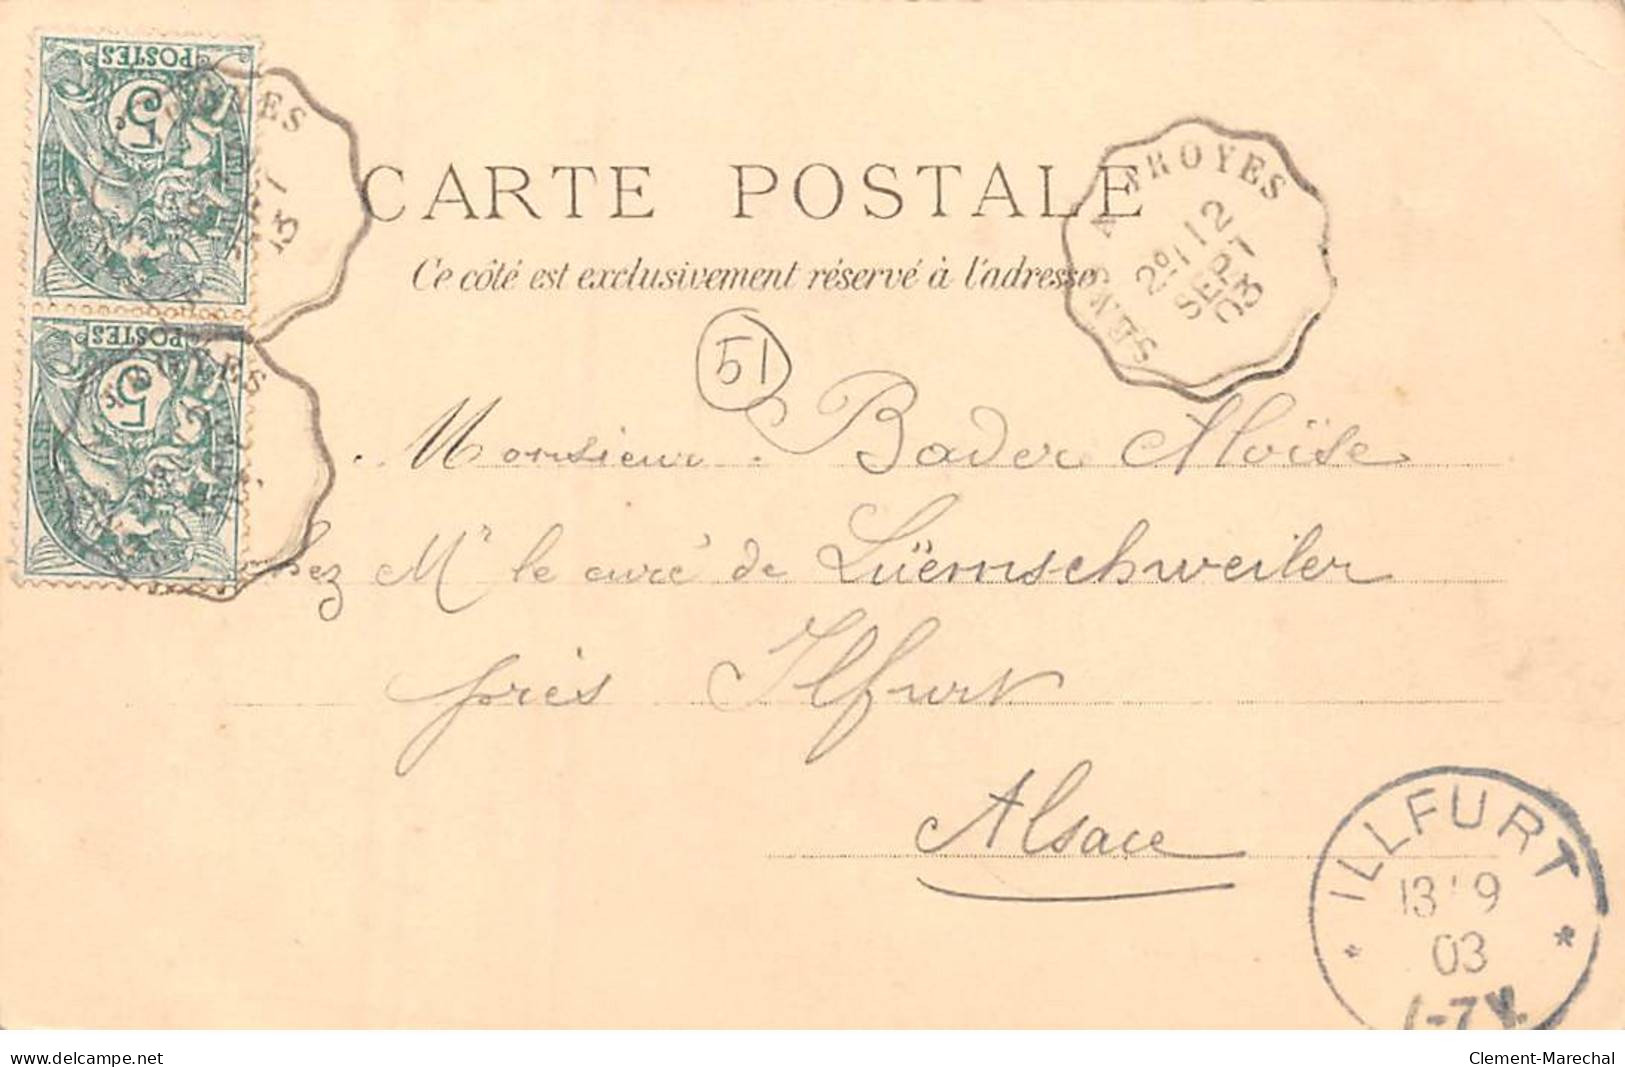 POSTES
5
POSTES
5
CARTE POSTALE
Ce côté est exclusivement réservé à l'adresse
TROYES
2º 12
SEPT
03
51
Monsieur Bader Aloïse
chez Mr le curé de Lüemschweiler
près Ilfurt
Alsace
ILLFURT
13 9
03
1-7V.
www.delcampe.net
Clement-Marechal